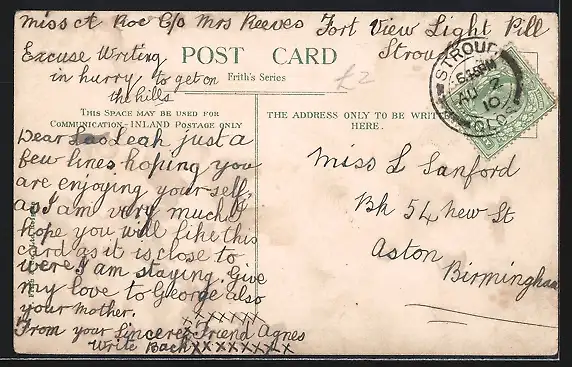 miss A Roe C/o Mrs Reeves Fort View Light Pill
Strou
Excuse Writing
in hurry to get on
the hills
POST CARD
Frith's Series
£2
STROUD
AU 2
10
GLOS
THIS SPACE MAY BE USED FOR
COMMUNICATION - INLAND POSTAGE ONLY
Dear Leah just a
few lines hoping you
are enjoying yourself,
as I am very much I
hope you will like this
card as it is close to
were I am staying. Give
my love to George also
your mother.
From your Sincere Friend Agnes
Write Back xxxxxxxx
THE ADDRESS ONLY TO BE WRIT
HERE.
Miss L Sanford
Bk 54 New St
Aston
Birmingham